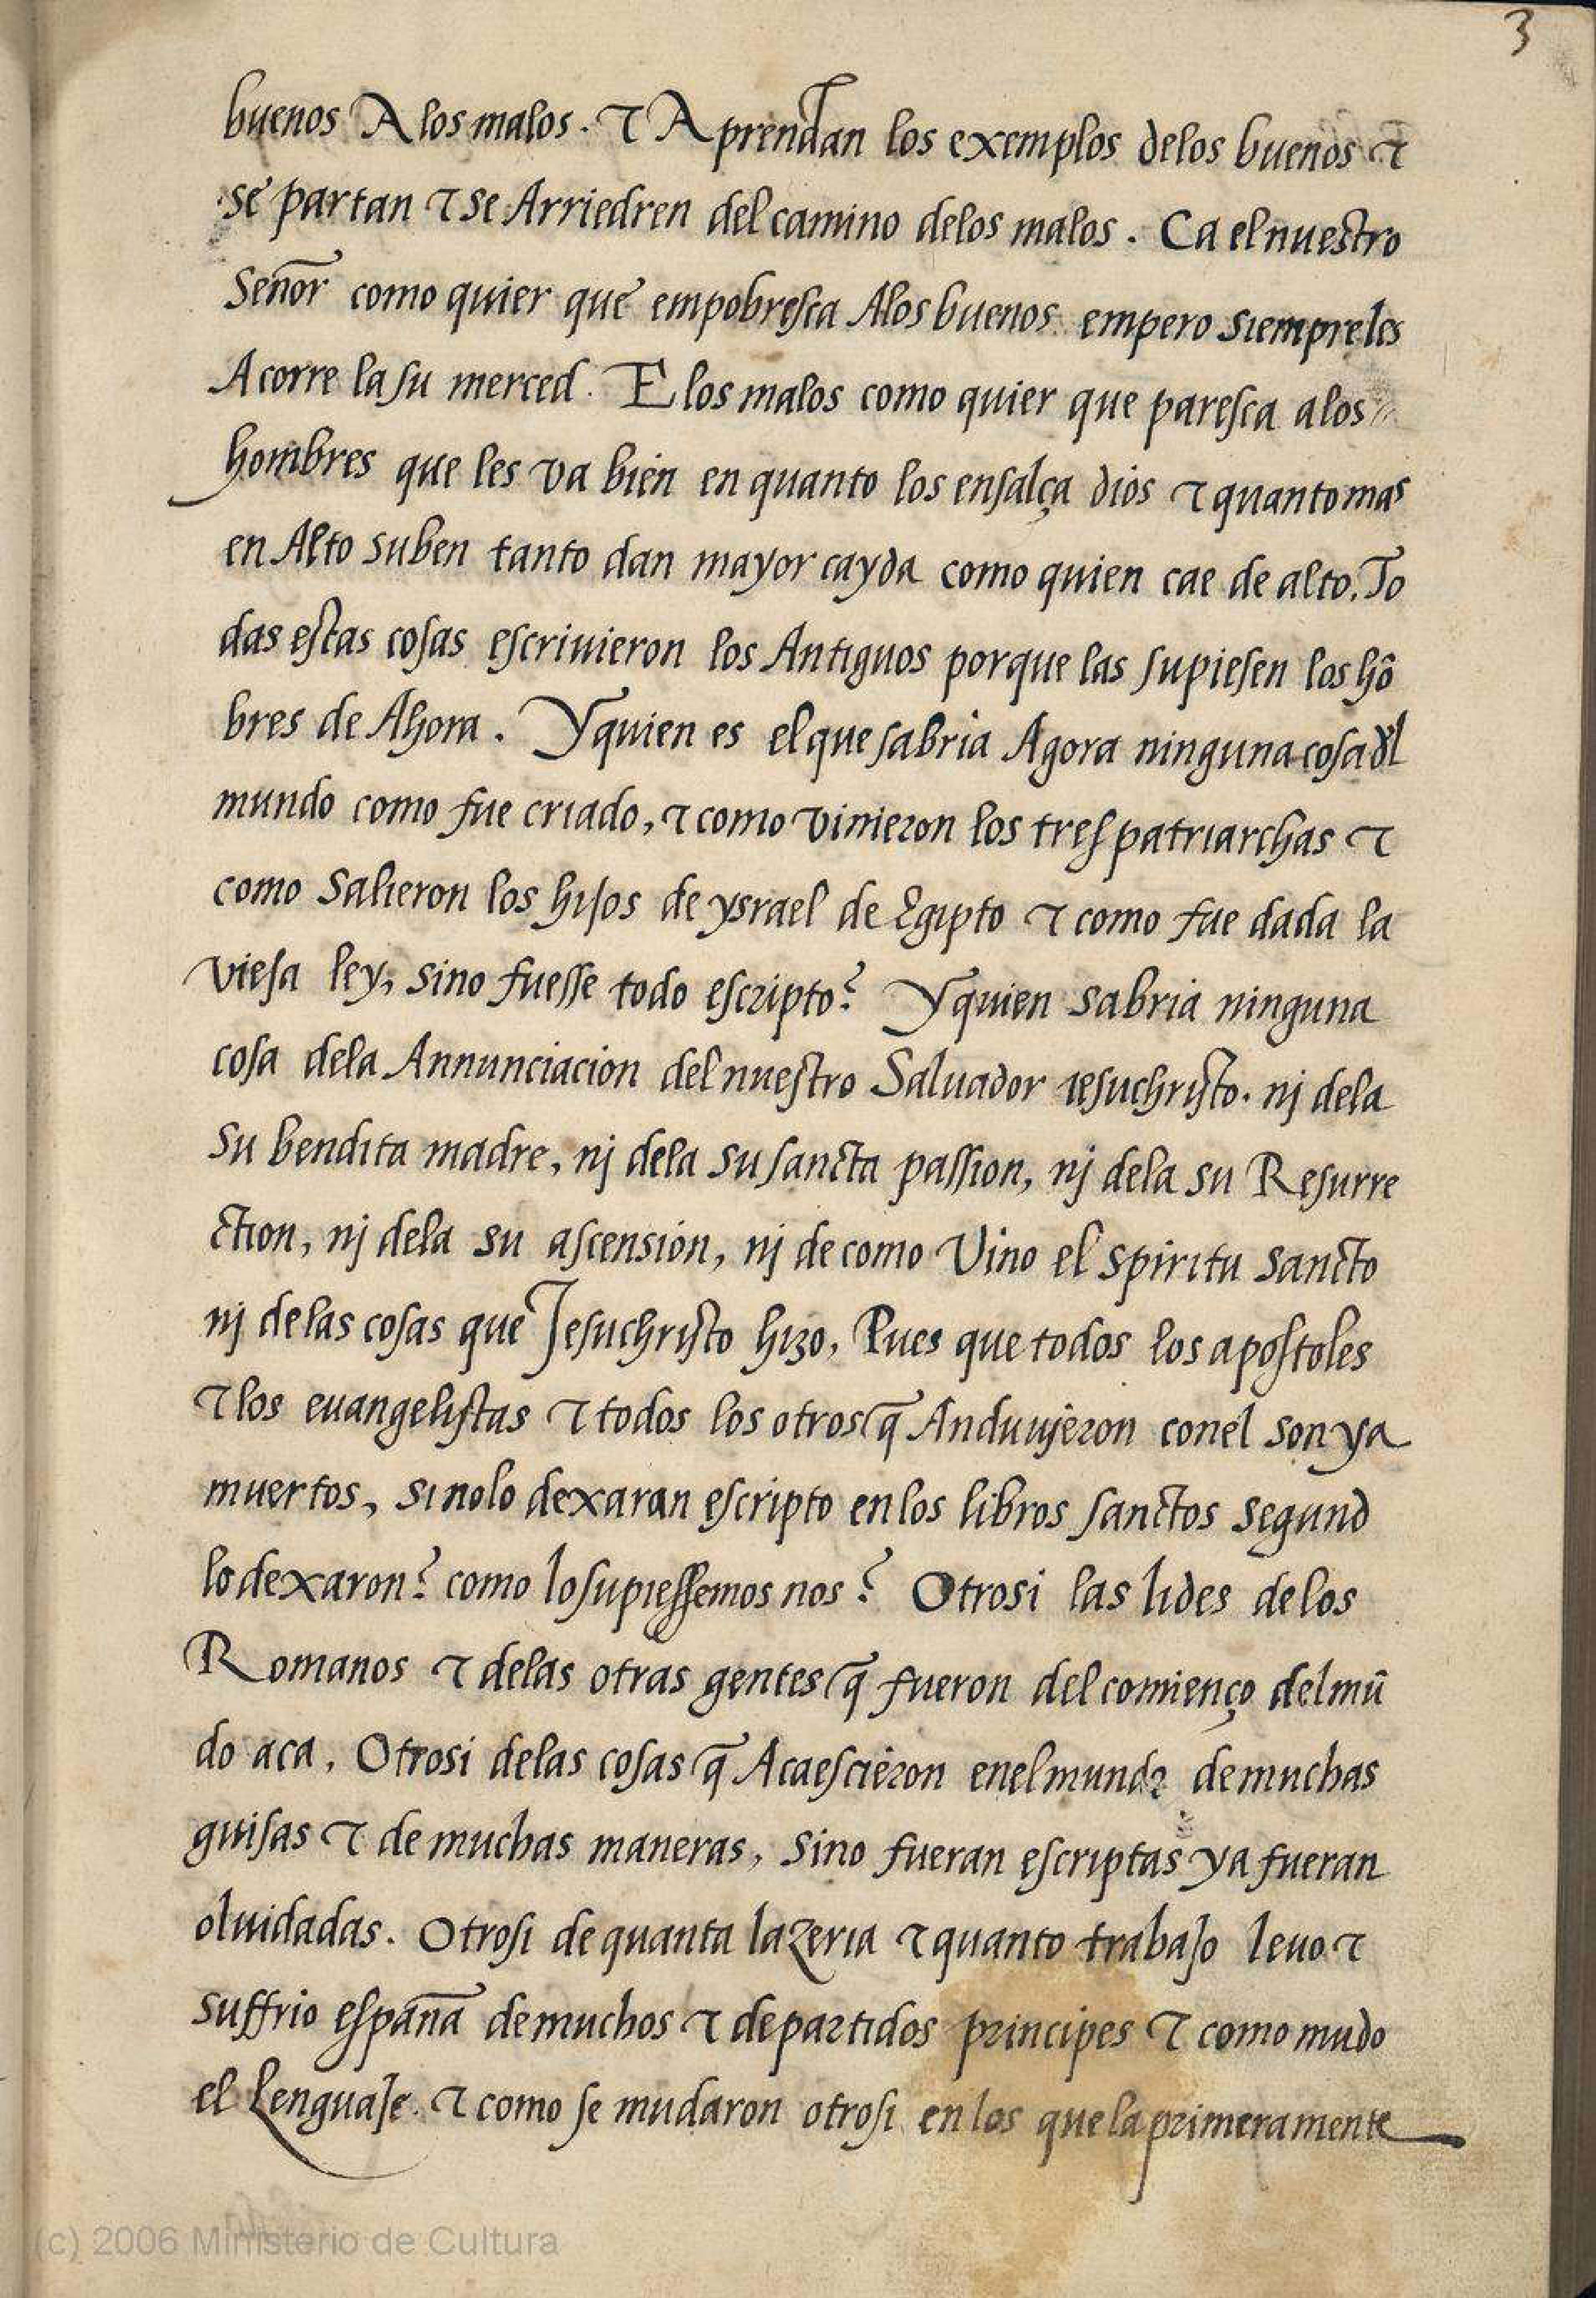 3
buenos A los malos. ⁊ Aprendan los exemplos delos buenos ⁊
se partan ⁊ se Arriedren del camino delos malos. Ca el nuestro
Señor como quier que empobresca Alos buenos empero siempre les
Acorre la su merced. E los malos como quier que paresca alos
hombres que les va bien en quanto los ensalça dios ⁊ quanto mas
en Alto suben tanto dan mayor cayda como quien cae de alto. To
das estas cosas escriuieron los Antiguos porque las supiesen los hõ
bres de Ahora. Y quien es el que sabria Agora ninguna cosa dl
mundo como fue criado, ⁊ como vinieron los tres patriarchas ⁊
como salieron los hijos de ysrael de Egipto ⁊ como fue dada la
vieja ley, sino fuesse todo escripto? Y quien sabria ninguna
cosa dela Annunciacion del nuestro Saluador iesuchristo. nj dela
su bendita madre, nj dela su sancta passion, nj dela su Resurre
ction, nj dela su ascension, nj de como Vino el spiritu sancto
nj delas cosas que Jesuchristo hizo, Pues que todos los apostoles
⁊ los euangelistas ⁊ todos los otros q̃ Anduujeron conel son ya
muertos, si nolo dexaran escripto en los libros sanctos segund
lo dexaron? como lo supiessemos nos? Otrosi las lides delos
Romanos ⁊ delas otras gentes q̃ fueron del comienço del mũ
do aca. Otrosi delas cosas q̃ Acaescieron enel mundo de muchas
guisas ⁊ de muchas maneras, sino fueran escriptas ya fueran
oluidadas. Otrosi de quanta lazeria ⁊ quanto trabajo leuo ⁊
suffrio españa de muchos ⁊ departidos principes ⁊ como mudo
el Lenguaje. ⁊ como se mudaron otrosi en los que la primeramente
(c) 2006 Ministerio de Cultura